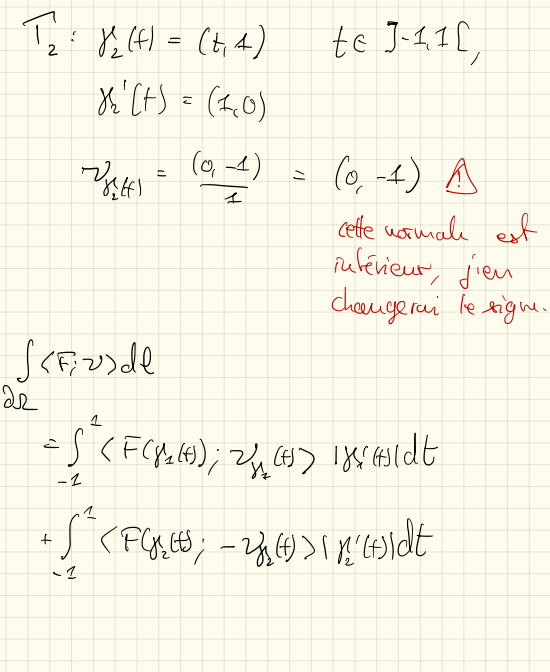 Γ₂ : γ₂(t) = (t, 1) t ∈ ]-1, 1[,
γ₂'(t) = (1, 0)
ν_γ₂(t) = (0, -1)/1 = (0, -1) ⚠
cette normale est
intérieur, j'en
changerai le signe.
∫_∂Ω <F; ν> dℓ
= ∫_-1^1 <F(γ₁(t)); ν_γ₁(t)> |γ₁'(t)| dt
+ ∫_-1^1 <F(γ₂(t); -ν_γ₂(t)> |γ₂'(t)| dt